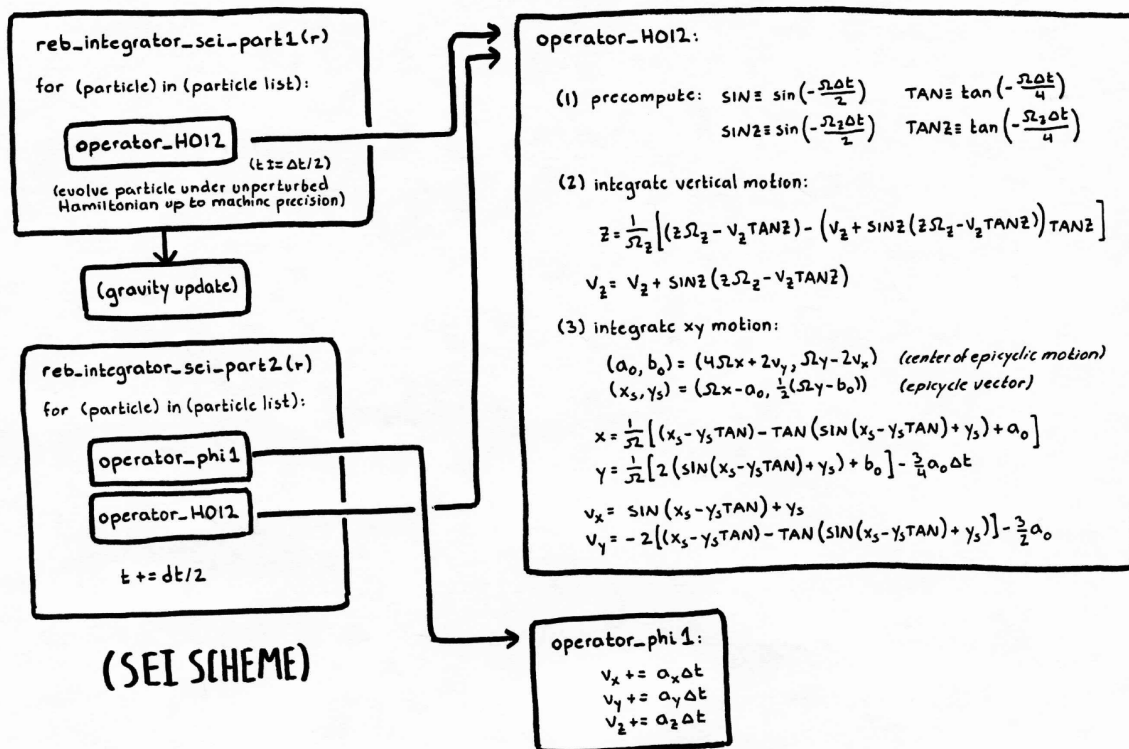 reb_integrator_sei_part1(r)
for (particle) in (particle list):
operator_H012
(t ±= Δt/2)
(evolve particle under unperturbed
Hamiltonian up to machine precision)
(gravity update)
reb_integrator_sei_part2(r)
for (particle) in (particle list):
operator_phi1
operator_H012
t += dt/2
(SEI SCHEME)
operator_H012:
(1) precompute: SIN ≡ sin(-ΩΔt/2) TAN ≡ tan(-ΩΔt/4)
SINZ ≡ sin(-Ω_zΔt/2) TANZ ≡ tan(-Ω_zΔt/4)
(2) integrate vertical motion:
z = 1/Ω_z [(zΩ_z - v_z TANZ) - (v_z + SINZ (zΩ_z - v_z TANZ)) TANZ]
v_z = v_z + SINZ (zΩ_z - v_z TANZ)
(3) integrate xy motion:
(a₀, b₀) = (4Ωx + 2v_y, Ωy - 2v_x) (center of epicyclic motion)
(x_s, y_s) = (Ωx - a₀, ½(Ωy - b₀)) (epicycle vector)
x = 1/Ω [(x_s - y_s TAN) - TAN (SIN (x_s - y_s TAN) + y_s) + a₀]
y = 1/Ω [2 (SIN (x_s - y_s TAN) + y_s) + b₀] - ¾ a₀ Δt
v_x = SIN (x_s - y_s TAN) + y_s
v_y = -2 [(x_s - y_s TAN) - TAN (SIN (x_s - y_s TAN) + y_s)] - 3/2 a₀
operator_phi1:
v_x += a_x Δt
v_y += a_y Δt
v_z += a_z Δt